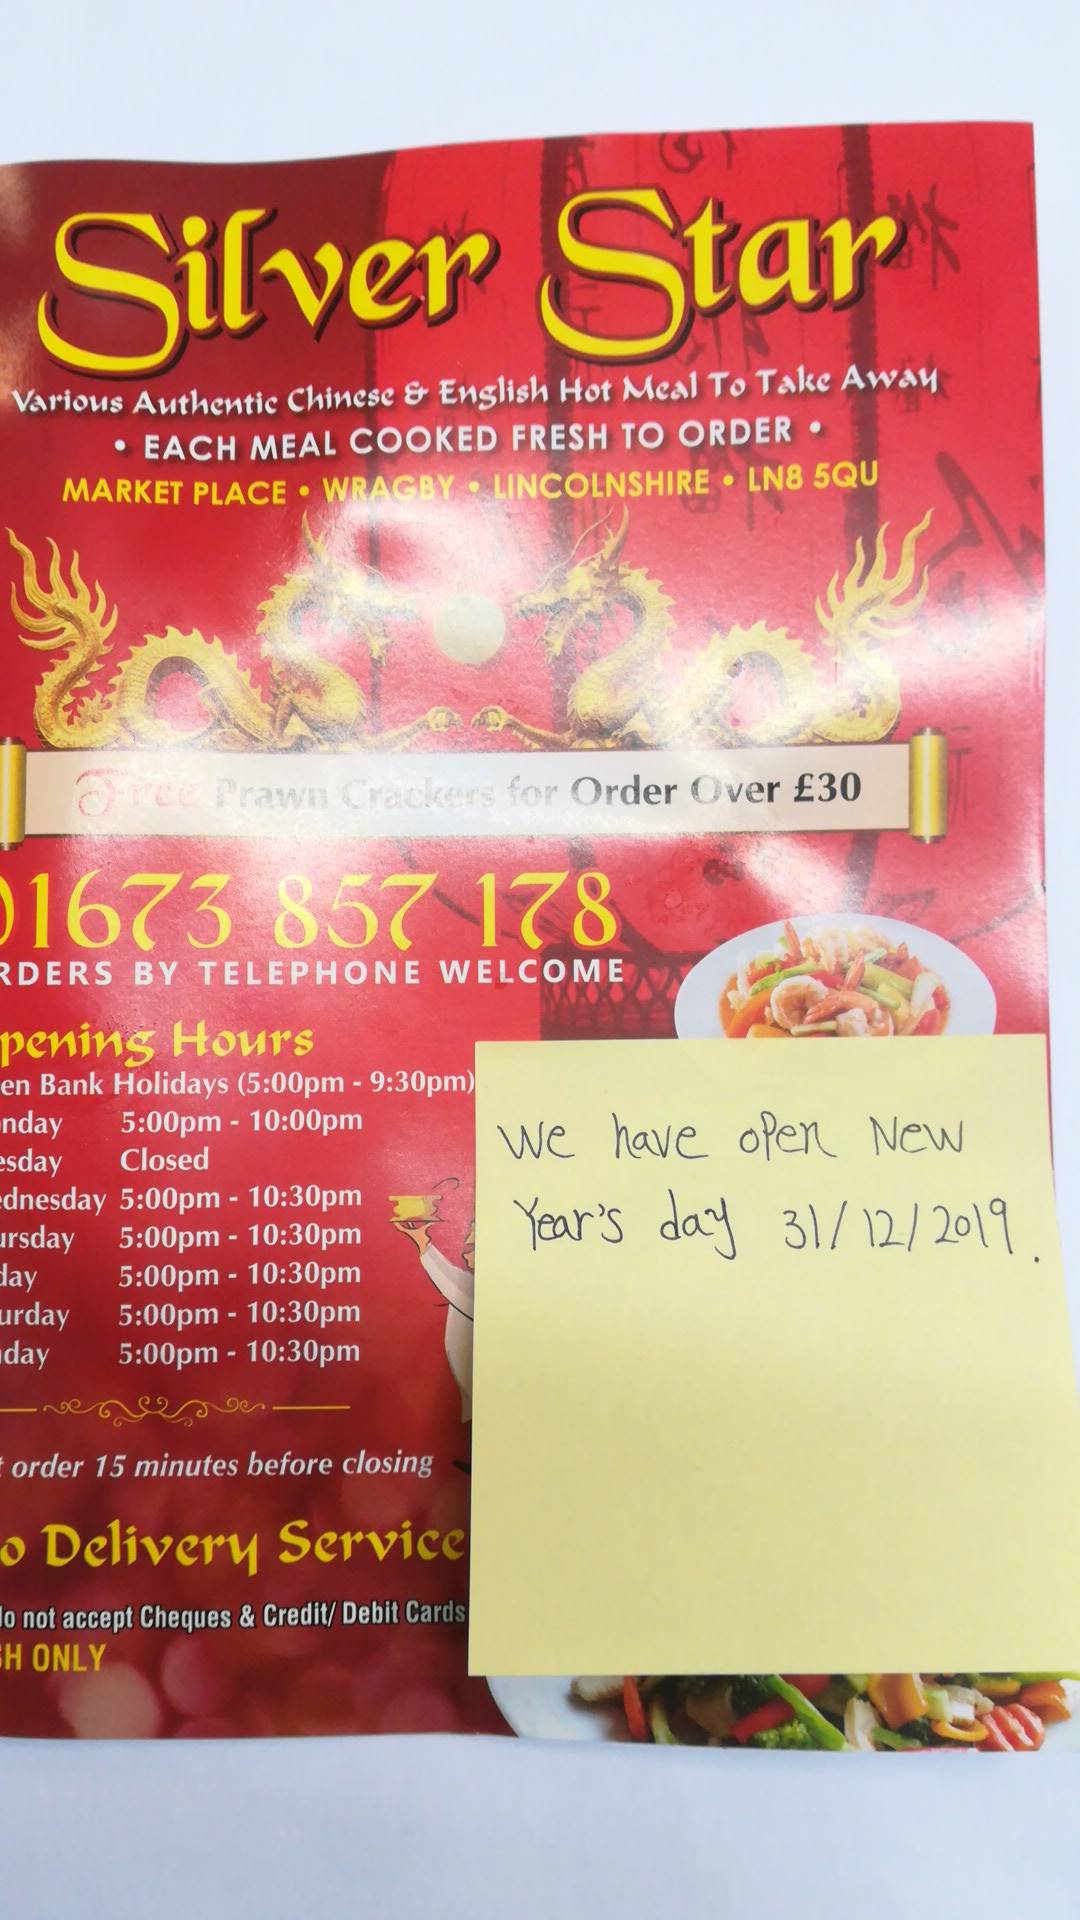 Silver Star
Various Authentic Chinese & English Hot Meal To Take Away
• EACH MEAL COOKED FRESH TO ORDER •
MARKET PLACE • WRAGBY • LINCOLNSHIRE • LN8 5QU
Free Prawn Crackers for Order Over £30
01673 857 178
RDERS BY TELEPHONE WELCOME
pening Hours
en Bank Holidays (5:00pm - 9:30pm)
nday 5:00pm - 10:00pm
esday Closed
ednesday 5:00pm - 10:30pm
ursday 5:00pm - 10:30pm
day 5:00pm - 10:30pm
urday 5:00pm - 10:30pm
day 5:00pm - 10:30pm
t order 15 minutes before closing
o Delivery Service
do not accept Cheques & Credit/ Debit Cards
SH ONLY
We have open New
Year's day 31/12/2019.